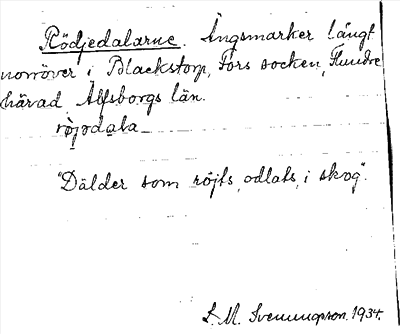 Rödjedalarne. Ängsmarker längt
norröver i Blackstorp, Fors socken, Flundre
härad Älfsborgs län.
röjədala
"Dälder som röjts, odlats, i skog".
S. M. Svenungson. 1934.